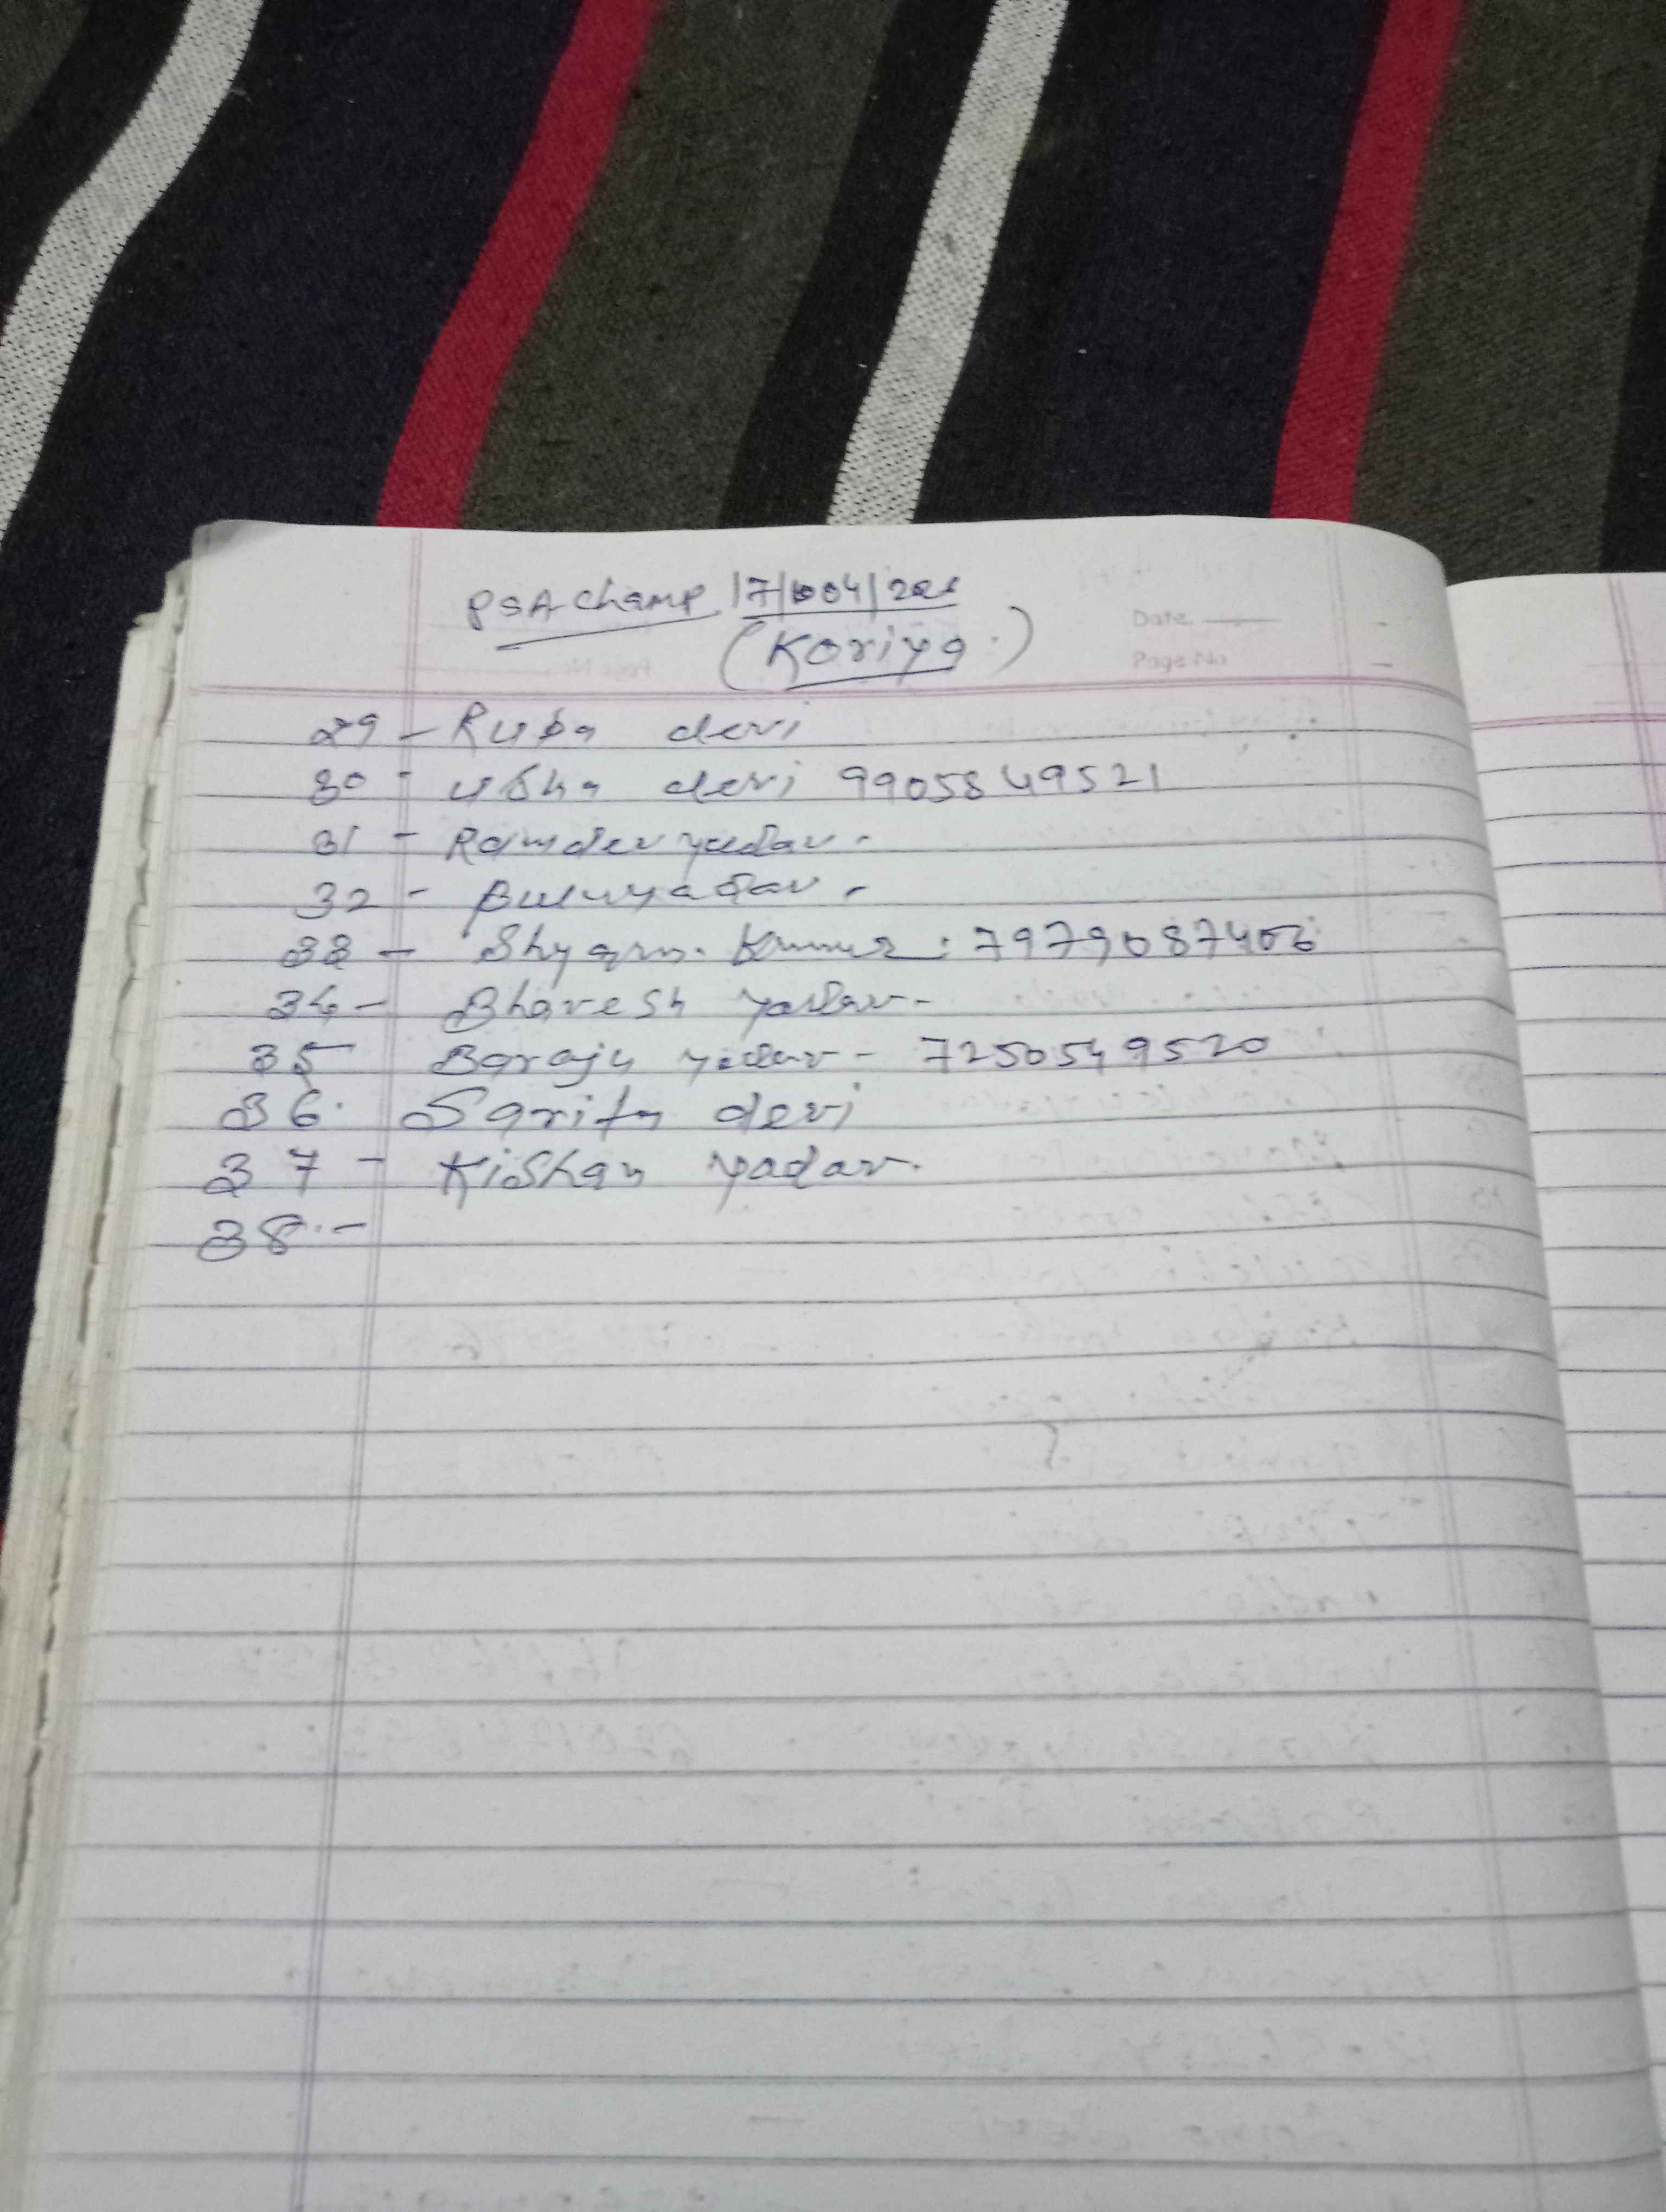 PSA champ 17/04/202
(Koriya.)
Date
Page No
29 - Ruba devi
30 - Usha devi 9905849521
31 - Ramdev yadav.
32 - Buluyadav.
33 - Shyam. Kumar: 7979087406
34 - Bhavesh Yadav-
35 Baraju yadav - 7250549520
36. Sarita devi
37 - Kishan yadav.
38.-